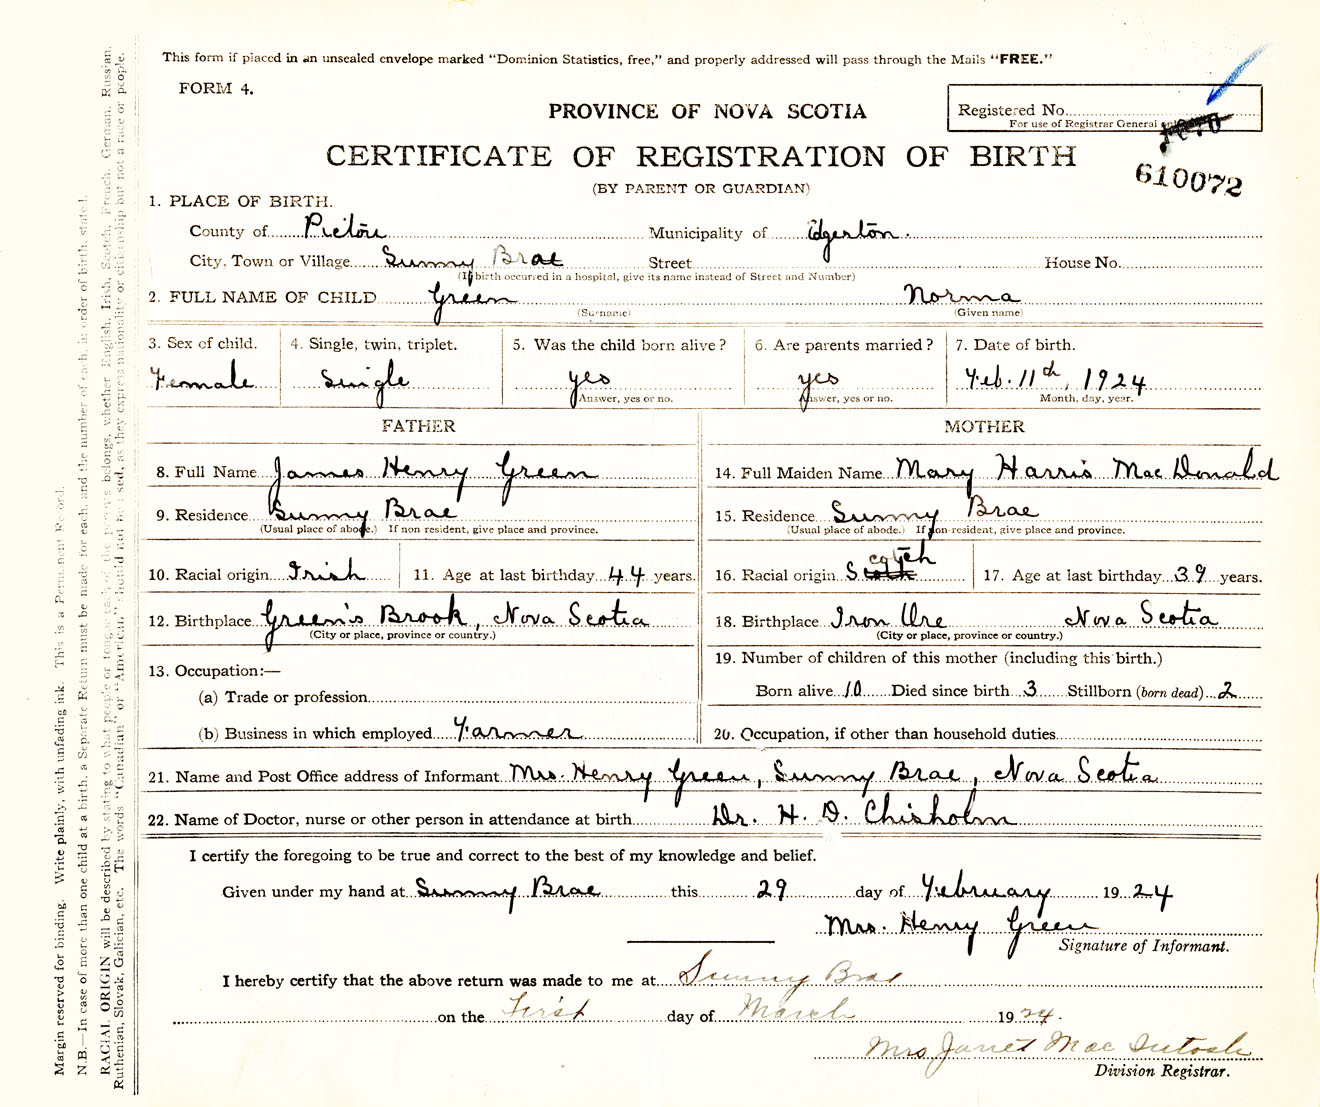 This form if placed in an unsealed envelope marked “Dominion Statistics, free,” and properly addressed will pass through the Mails “FREE.”
FORM 4.
PROVINCE OF NOVA SCOTIA
Registered No.
For use of Registrar General
CERTIFICATE OF REGISTRATION OF BIRTH
610072
(BY PARENT OR GUARDIAN)
1. PLACE OF BIRTH.
County of Pictou Municipality of Egerton.
City, Town or Village Sunny Brae Street House No.
(If birth occurred in a hospital, give its name instead of Street and Number)
2. FULL NAME OF CHILD Green Norma
(Surname) (Given name)
3. Sex of child. 4. Single, twin, triplet. 5. Was the child born alive? 6. Are parents married? 7. Date of birth.
Female Single yes yes Feb. 11th, 1924
Answer, yes or no. Answer, yes or no. Month, day, year.
FATHER MOTHER
8. Full Name James Henry Green 14. Full Maiden Name Mary Harris MacDonald
9. Residence Sunny Brae 15. Residence Sunny Brae
(Usual place of abode.) If non resident, give place and province. (Usual place of abode.) If non-resident, give place and province.
10. Racial origin Irish 11. Age at last birthday 44 years. 16. Racial origin Scotch 17. Age at last birthday 39 years.
12. Birthplace Green's Brook, Nova Scotia 18. Birthplace Iron Ore Nova Scotia
(City or place, province or country.) (City or place, province or country.)
13. Occupation:— 19. Number of children of this mother (including this birth.)
(a) Trade or profession Born alive 10 Died since birth 3 Stillborn (born dead) 2
(b) Business in which employed Farmer 20. Occupation, if other than household duties
21. Name and Post Office address of Informant Mrs. Henry Green, Sunny Brae, Nova Scotia
22. Name of Doctor, nurse or other person in attendance at birth Dr. H. D. Chisholm
I certify the foregoing to be true and correct to the best of my knowledge and belief.
Given under my hand at Sunny Brae this 29 day of February 1924
Mrs. Henry Green
Signature of Informant.
I hereby certify that the above return was made to me at Sunny Brae
on the First day of March 1924.
Mrs Janet MacIntosh
Division Registrar.
Margin reserved for binding. Write plainly, with unfading ink. This is a Permanent Record.
N.B.—In case of more than one child at a birth, a Separate Return must be made for each, and the number of each, in order of birth, stated.
RACIAL ORIGIN will be described by stating to what people or tongue each of the parents belongs, whether English, Irish, Scotch, French, German, Russian,
Ruthenian, Slovak, Galician, etc. The words "Canadian" or "American" should not be used, as they express nationality or citizenship but not a race or people.